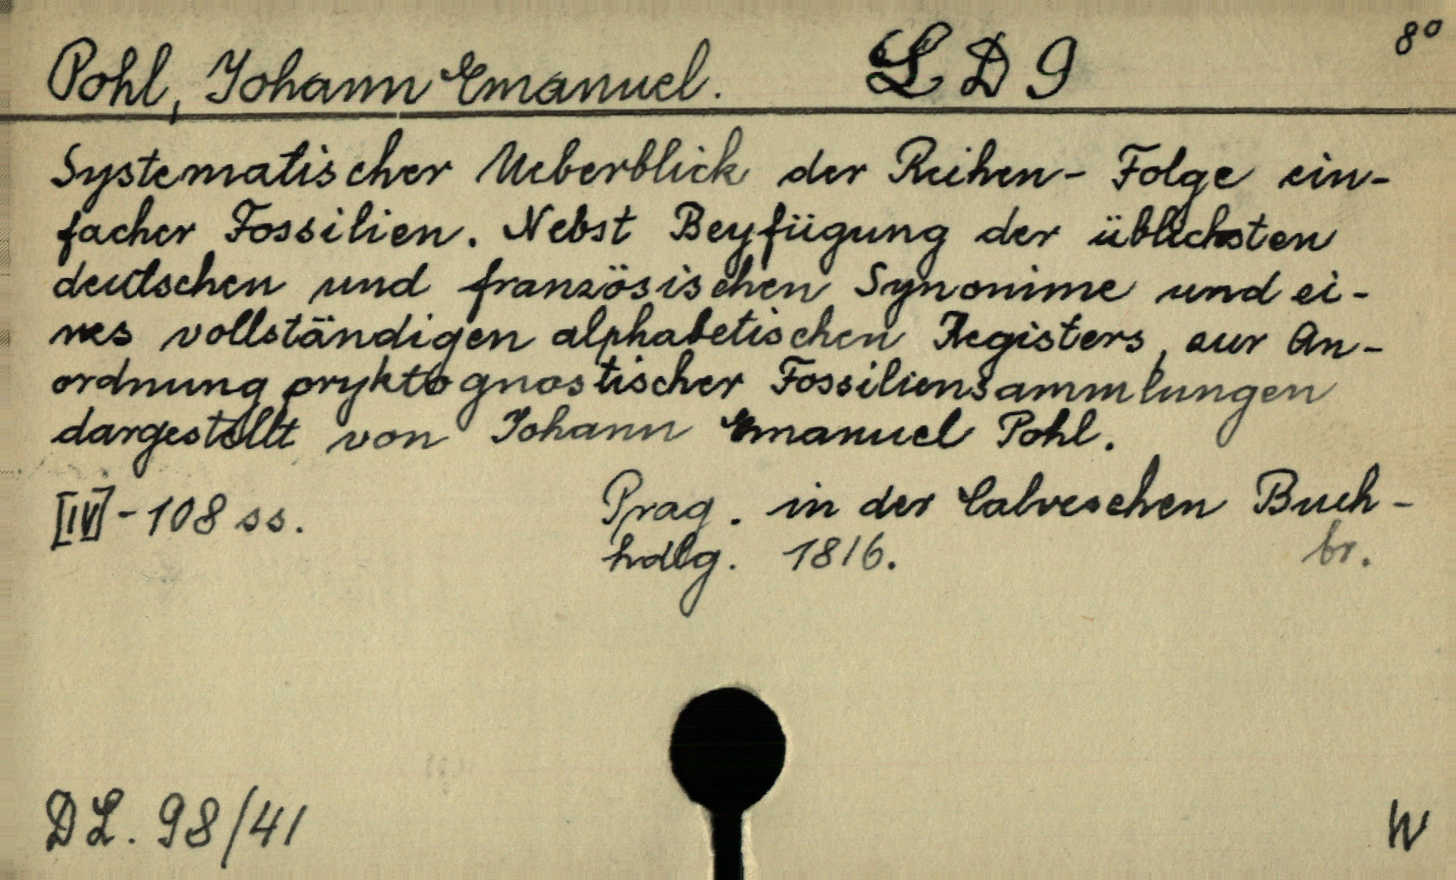 Pohl, Johann Emanuel. L D 9 8°
Systematischer Ueberblick der Reihen- Folge ein-
facher Fossilien. Nebst Beyfügung der üblichsten
deutschen und französischen Synonime und ei-
nes vollständigen alphabetischen Registers, zur An-
ordnung oryktognostischer Fossiliensammlungen
dargestellt von Johann Emanuel Pohl.
[IV]-108 ss. Prag. in der Calveschen Buch-
hdlg. 1816. br.
DL. 98/41 W